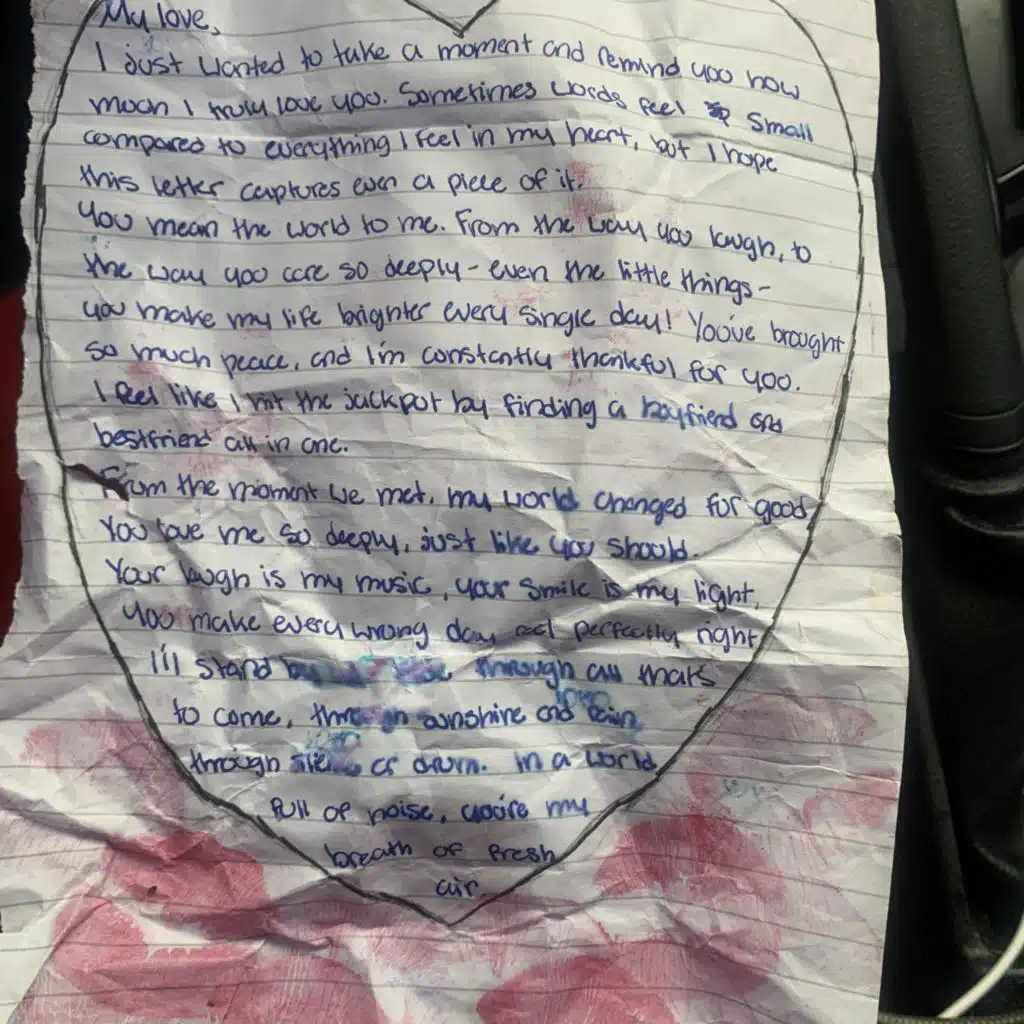 My love,
I just wanted to take a moment and remind you how
much I truly love you. Sometimes words feel small
compared to everything I feel in my heart, but I hope
this letter captures even a piece of it.
You mean the world to me. From the way you laugh, to
the way you care so deeply - even the little things -
you make my life brighter every single day! You've brought
so much peace, and I'm constantly thankful for you.
I feel like I hit the jackpot by finding a boyfriend and
bestfriend all in one.
From the moment we met, my world changed for good
You love me so deeply, just like you should.
Your laugh is my music, your smile is my light,
you make every wrong day feel perfectly right
I'll stand by through all thats
to come, through sunshine and rain
through or drum. In a world
full of noise, you're my
breath of fresh
air.